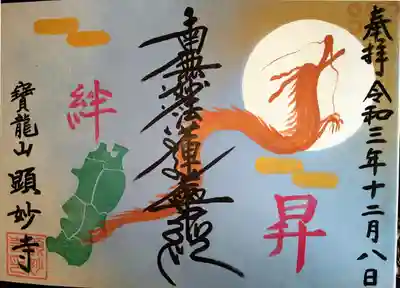 奉拝 令和三年十二月八日
昇
南無妙法蓮華経
絆
寶龍山 顕妙寺